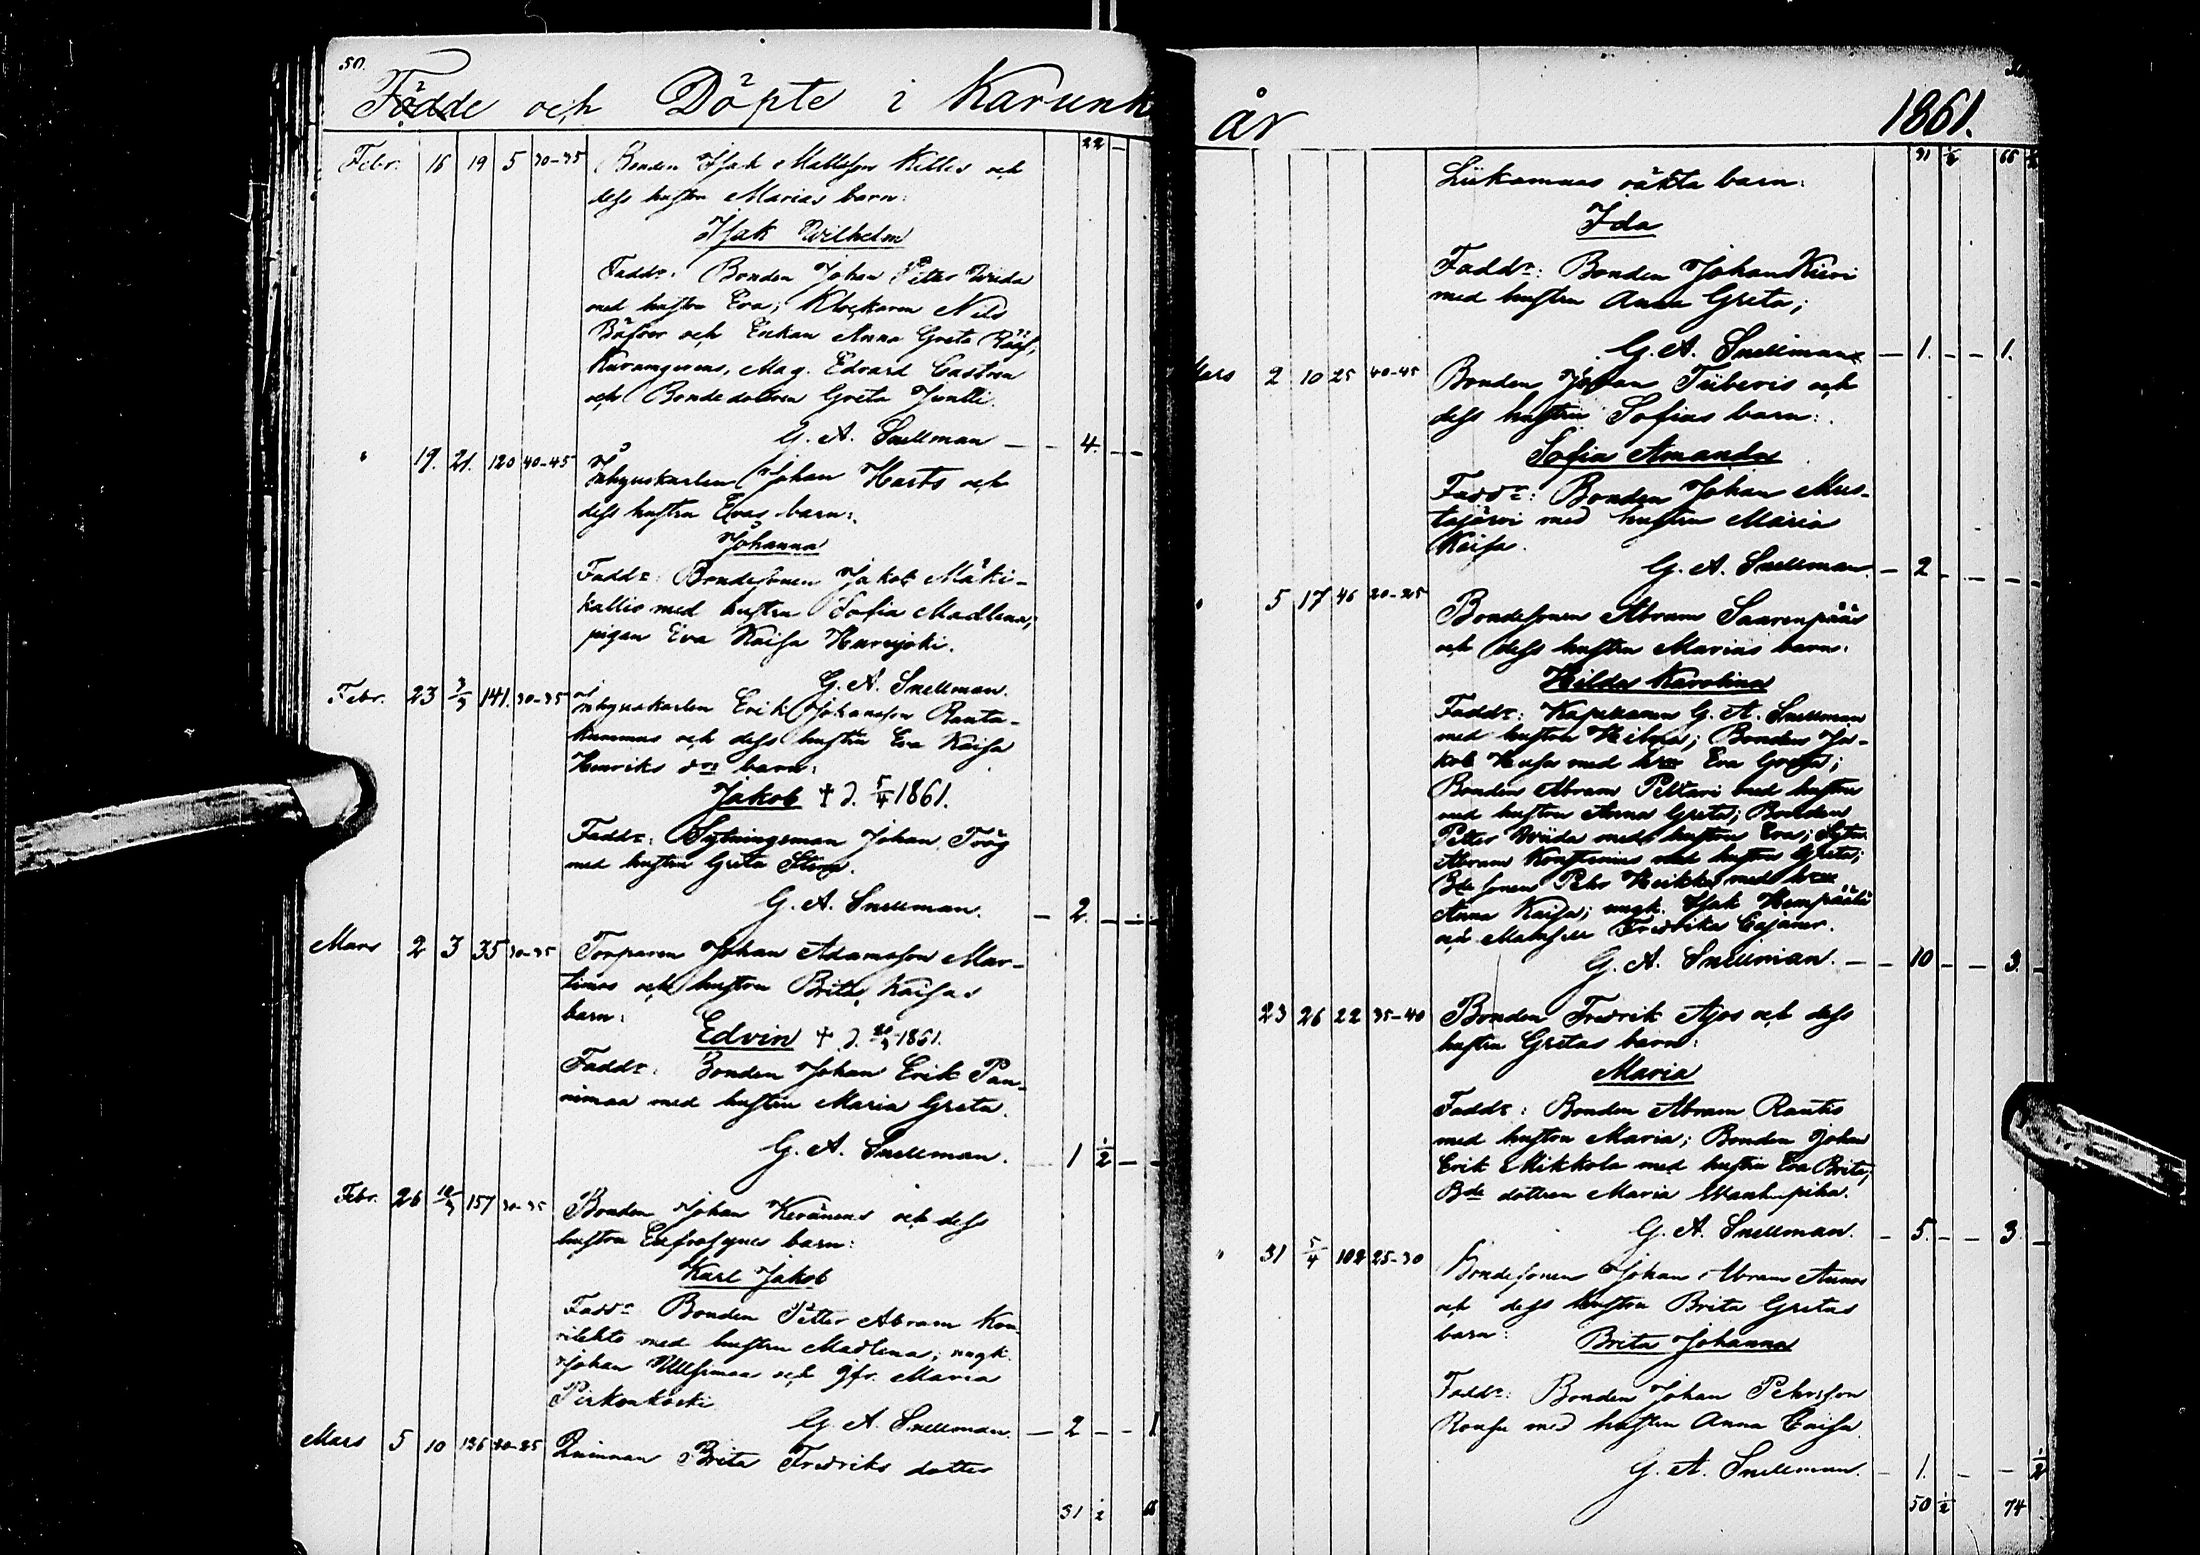 50.
Födde och Döpte i Karunk
22 –
Febr. 16 19 5 30–35 Bonden Isak Mattsson Killis och
dess hustru Marias barn:
Isak Wilhelm
Fadd:r Bonden Johan Petter
med hustru Eva; Klockaren Nils
och Enkan Anna Greta
Mag. Edvard Castren
och Bondedottren Greta Juntti.
G. A. Snellman – – 4. – –
" 19. 21. 120 40–45 Inhyskarlen Johan Harts och
dess hustru Evas barn:
Johanna
Fadd:r Bondesonen Jakob Mäki-
kallio med hustru Sofia Madlena;
pigan Eva Kaisa
G. A. Snellman.
Febr. 23 3/3 141. 30–35 Inhyskarlen Erik Johansson Ranta-
och dess hustru Eva Kaisa
Henriks d:rs barn:
Jakob † d. 5/4 1861.
Fadd:r: Sytningsman Johan
med hustru Greta
G. A. Snellman. – 2. – –
Mars 2 3 35 30–35 Torparen Johan Adamsson Mar-
timos och hustru Brita Kaisas
barn:
Edvin † d. 20/3 1861.
Fadd:r: Bonden Johan Erik Pan-
nimaa med hustru Maria Greta.
G. A. Snellman. – 1 1/2 – –
Febr. 26 10/3 157 30–35 Bonden Johan Keränens och dess
hustru Eufrosynes barn:
Karl Jakob
Fadd:r Bonden Petter Abram Kon-
med hustru Madlena; ungk.
Johan och Jfr. Maria
Pirkonkoski
G. A. Snellman. – 2 – – 1
Mars 5 10 136 20–25 Qvinnan Brita Fredriks dotter
31 1/2
år 1861.
31 1/2 66
Liikamaas oäkta barn:
Ida
Fadd:r: Bonden Johan Kivi
med hustru Anna Greta;
G. A. Snellman – 1. – – 1.
Mars 2 10 25 40–45 Bonden Johan Tiiberis och
dess hustru Sofias barn:
Sofia Amanda
Fadd:r: Bonden Johan Mus-
tajärvi med hustru Maria
Kaisa.
G. A. Snellman. – 2 – – – –
" 5 17 46 20–25 Bondesonen Abram Saarenpääs
och dess hustru Marias barn:
Hilda Karolina
Fadd:r: Kapellanen G. A. Snellman
med hustru Hilma; Bonden Ja-
kob med Eva Greta;
Bonden Abram Peltari med hustru
med hustru Anna Greta; Bonden
Petter med hustru Eva; Sytn.
Abram med hustru Greta;
Bde sonen Pehr Heikka med
Anna Kaisa; ungk. Isak
och Mamsell Fredrika Cajaner.
G. A. Snellman. – – 10 – – 3. –
23 26 22 35–40 Bonden Fredrik Ajos och dess
hustru Gretas barn:
Maria
Fadd:r: Bonden Abram Rautio
med hustru Maria; Bonden Johan
Erik Mikkola med hustru Eva Brita;
Bde dottren Maria
G. A. Snellman. – 5. – – 3. –
" 31 5/4 102 25–30 Bondesonen Johan Abram Aunos
och dess hustru Brita Gretas
barn:
Brita Johanna
Fadd:r: Bonden Johan Pehrsson
med hustru Anna Caisa.
G. A. Snellman. – 1. – – 1/2
50 1/2 74